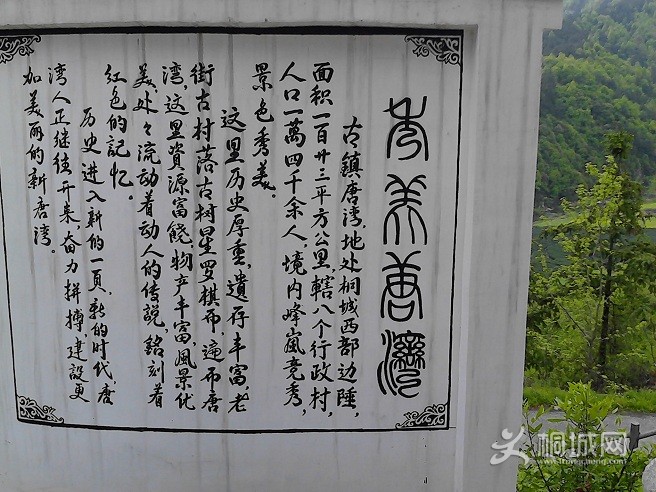 秀美唐灣
古鎮唐湾,地处桐城西部边陲,
面积一百廿三平方公里,辖八个行政村,
人口一萬四千余人,境内峰嵐竞秀,
景色秀美。
这里历史厚重,遺存丰富,老
街古村落古树星罗棋布,遍布唐
湾,这里資源富饒,物产丰富,風景优
美,处々流动着动人的传説,銘刻着
红色的記忆。
历史进入新的一頁,新的时代,唐
湾人正继往开来,奋力拼搏,建設更
加美丽的新唐湾。
桐城网
www.tongcheng.com